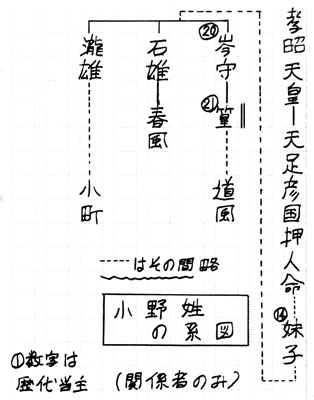 孝昭天皇ー天足彦国押人命 ⑭妹子
⑳岑守
㉑篁
道風
石雄
春風
瀧雄
小町
-----はその間略
小野姓
の系図
①数字は
歴代当主
(関係者のみ)